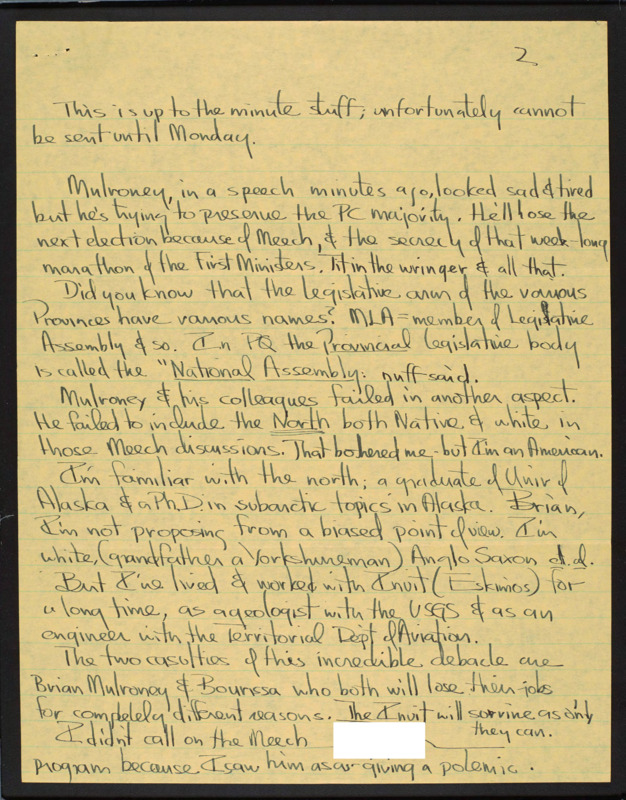 2
This is up to the minute stuff; unfortunately cannot
be sent until Monday.
Mulroney, in a speech minutes ago, looked sad & tired
but he's trying to preserve the PC majority. He'll lose the
next election because of Meech, & the secrecy of that week-long
marathon of the First Ministers. Tit in the wringer & all that.
Did you know that the legislative arm of the various
Provinces have various names? MLA = member of Legislative
Assembly & so. In PQ the Provincial legislative body
is called the "National Assembly: nuff said.
Mulroney & his colleagues failed in another aspect.
He failed to include the North both Native & white in
those Meech discussions. That bothered me - but I'm an American.
I'm familiar with the north; a graduate of Univ of
Alaska & a Ph.D. in subarctic topics in Alaska. Brian,
I'm not proposing from a biased point of view. I'm
white, (grandfather a Yorkshireman) Anglo Saxon
But I've lived & worked with Inuit (Eskimos) for
a long time, as a geologist with the USGS & as an
engineer with the Territorial Dept of Aviation.
The two casulties of this incredible debacle are
Brian Mulroney & Bourssa who both will lose their jobs
for completely different reasons. The Inuit will survive as only
they can.
I didn't call on the Meech
program because I saw him as giving a polemic.